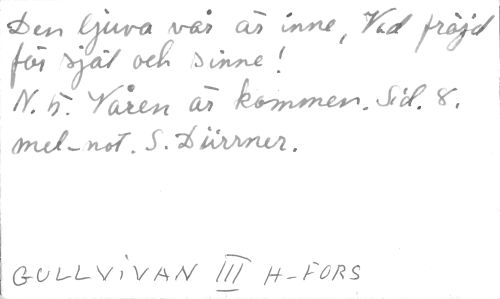 Den ljuva vår är inne, Vad fröjd
för själ och sinne!
N. 5. Våren är kommen. Sid. 8.
mel-not. S. Dürrner.
GULLVIVAN III H-FORS